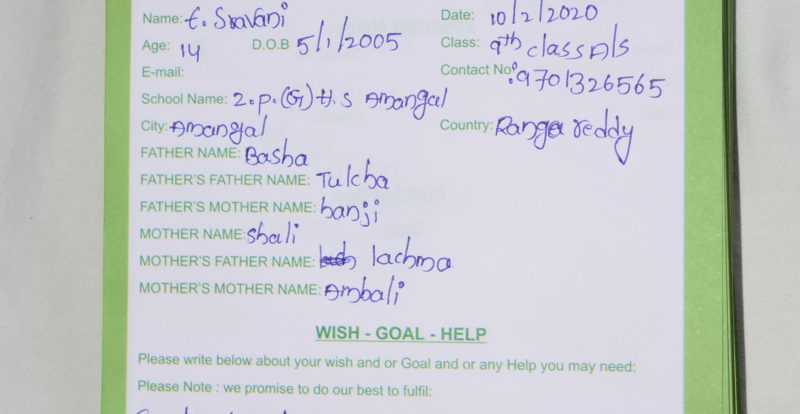 Name: E. Sravani Date: 10/2/2020
Age: 14 D.O.B 5/1/2005 Class: 9th class A/s
E-mail: Contact No: 9701326565
School Name: Z.P.(G) H.S Amangal
City: Amangal Country: Ranga reddy
FATHER NAME: Basha
FATHER'S FATHER NAME: Tulcha
FATHER'S MOTHER NAME: hanji
MOTHER NAME: shali
MOTHER'S FATHER NAME: lachma
MOTHER'S MOTHER NAME: Ambali
WISH - GOAL - HELP
Please write below about your wish and or Goal and or any Help you may need:
Please Note : we promise to do our best to fulfil: